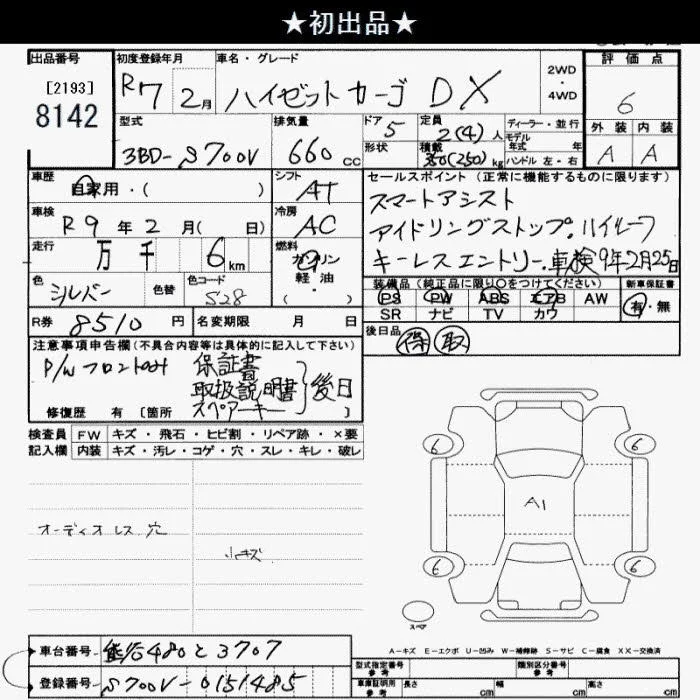 ★初出品★
出品番号 初度登録年月 車名・グレード 2WD・4WD 評価点
[2193]
8142
R7 2月 ハイゼットカーゴ DX 6
型式 排気量 ドア 5 定員 2(4)人 ディーラー・並行 外装 内装
モデル年式 年式
3BD-S700V 660cc 形状 積載 350(250)kg ハンドル 左・右 A A
車歴 自家用・( ) シフト AT セールスポイント (正常に機能するものに限ります)
スマートアシスト
車検 R9年2月( 日) 冷房 AC アイドリングストップ.ハイルーフ
走行 万 千 6km 燃料 ガソリン 軽油・( ) キーレスエントリー.車検9年2月25日
色 シルバー 色替 色コード S28 装備品 (純正品に限り○をつけてください) 新車保証書
PS PW ABS エアB AW 有・無
SR ナビ TV カワ
R券 8510円 名変期限 月 日 後日品 保 取
注意事項申告欄(不具合内容等は具体的に記入して下さい)
P/Wフロントのみ 保証書
取扱説明書 後日
スペアーキー
修復歴 有 [箇所
検査員記入欄 FW キズ・飛石・ヒビ割・リペア跡・×要
内装 キズ・汚レ・コゲ・穴・スレ・キレ・破レ
オーディオレス穴
小キズ
6 6
A1
6 6
スペア
A-キズ E-エクボ U-凹み W-補修跡 S-サビ C-腐食 XX-交換済
車台番号 熊谷480と3707
登録番号 S700V-0151485
型式指定番号 参考 類別区分番号 参考
車庫証明用 参考 長さ cm 幅 cm 高さ cm